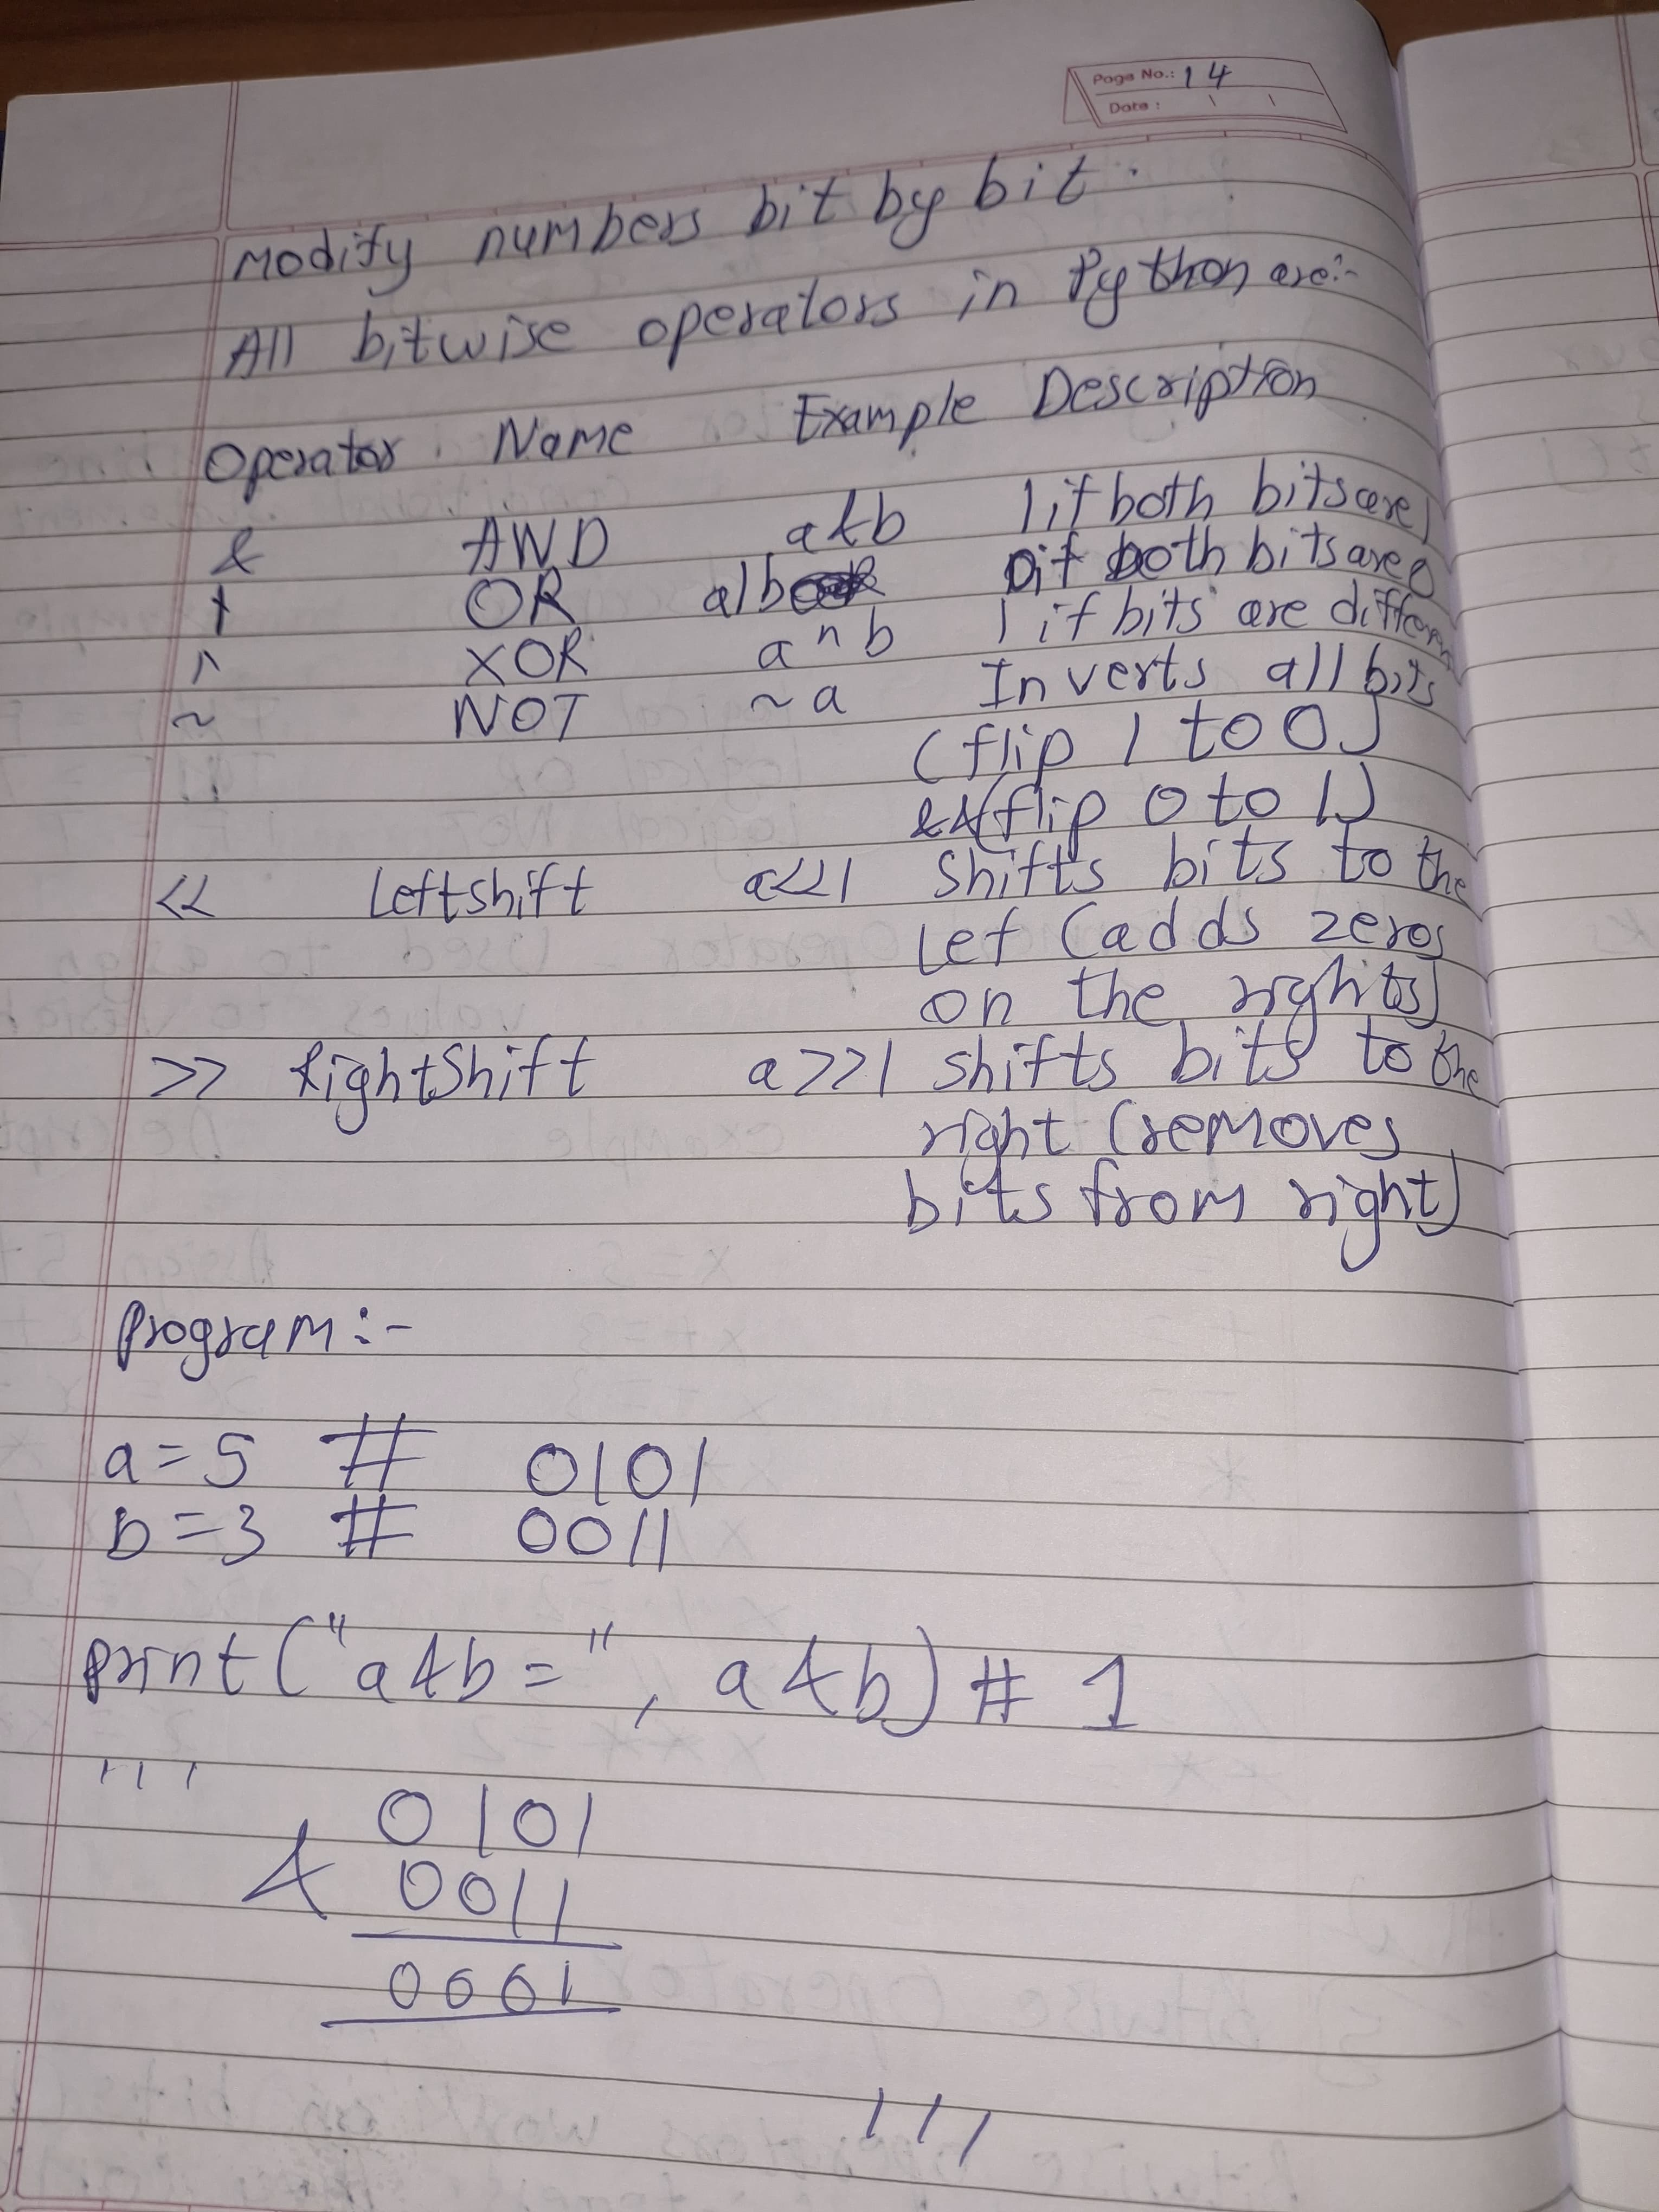 Page No.: 14
Date :
Modify numbers bit by bit.
All bitwise operators in Python are:-
Operator Name Example Description
& AND a&b 1 if both bits are 1
| OR a|b 0 if both bits are 0
^ XOR a^b 1 if bits are different
~ NOT ~a Inverts all bits
(flip 1 to 0)
&(flip 0 to 1)
<< Leftshift a<<1 Shifts bits to the
Lef (adds zeros
on the rights)
>> RightShift a>>1 shifts bits to the
right (removes
bits from right)
Program:-
a=5 # 0101
b=3 # 0011
print("a&b=", a&b) # 1
'''
0101
& 0011
0001
'''